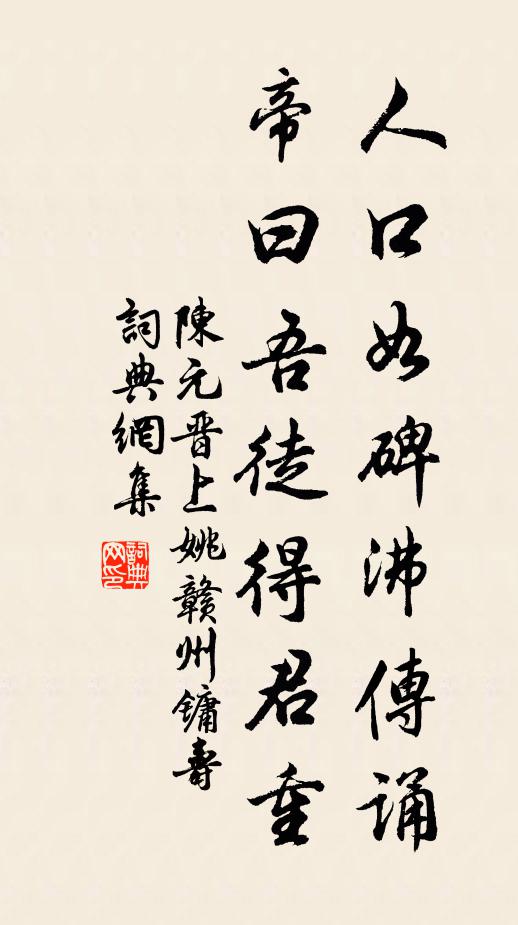 人口如碑沸傳誦
帝曰吾徒得君重
陳元晋上姚贛州鏞壽
詞典網集
詞典网印